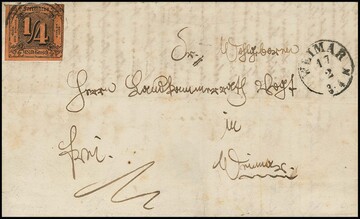 1/4
Sr Wohlgeboren
WEIMAR
17
2
3-4 N
Herrn Landkammerrath Vogt
in
Weimar.
frei.